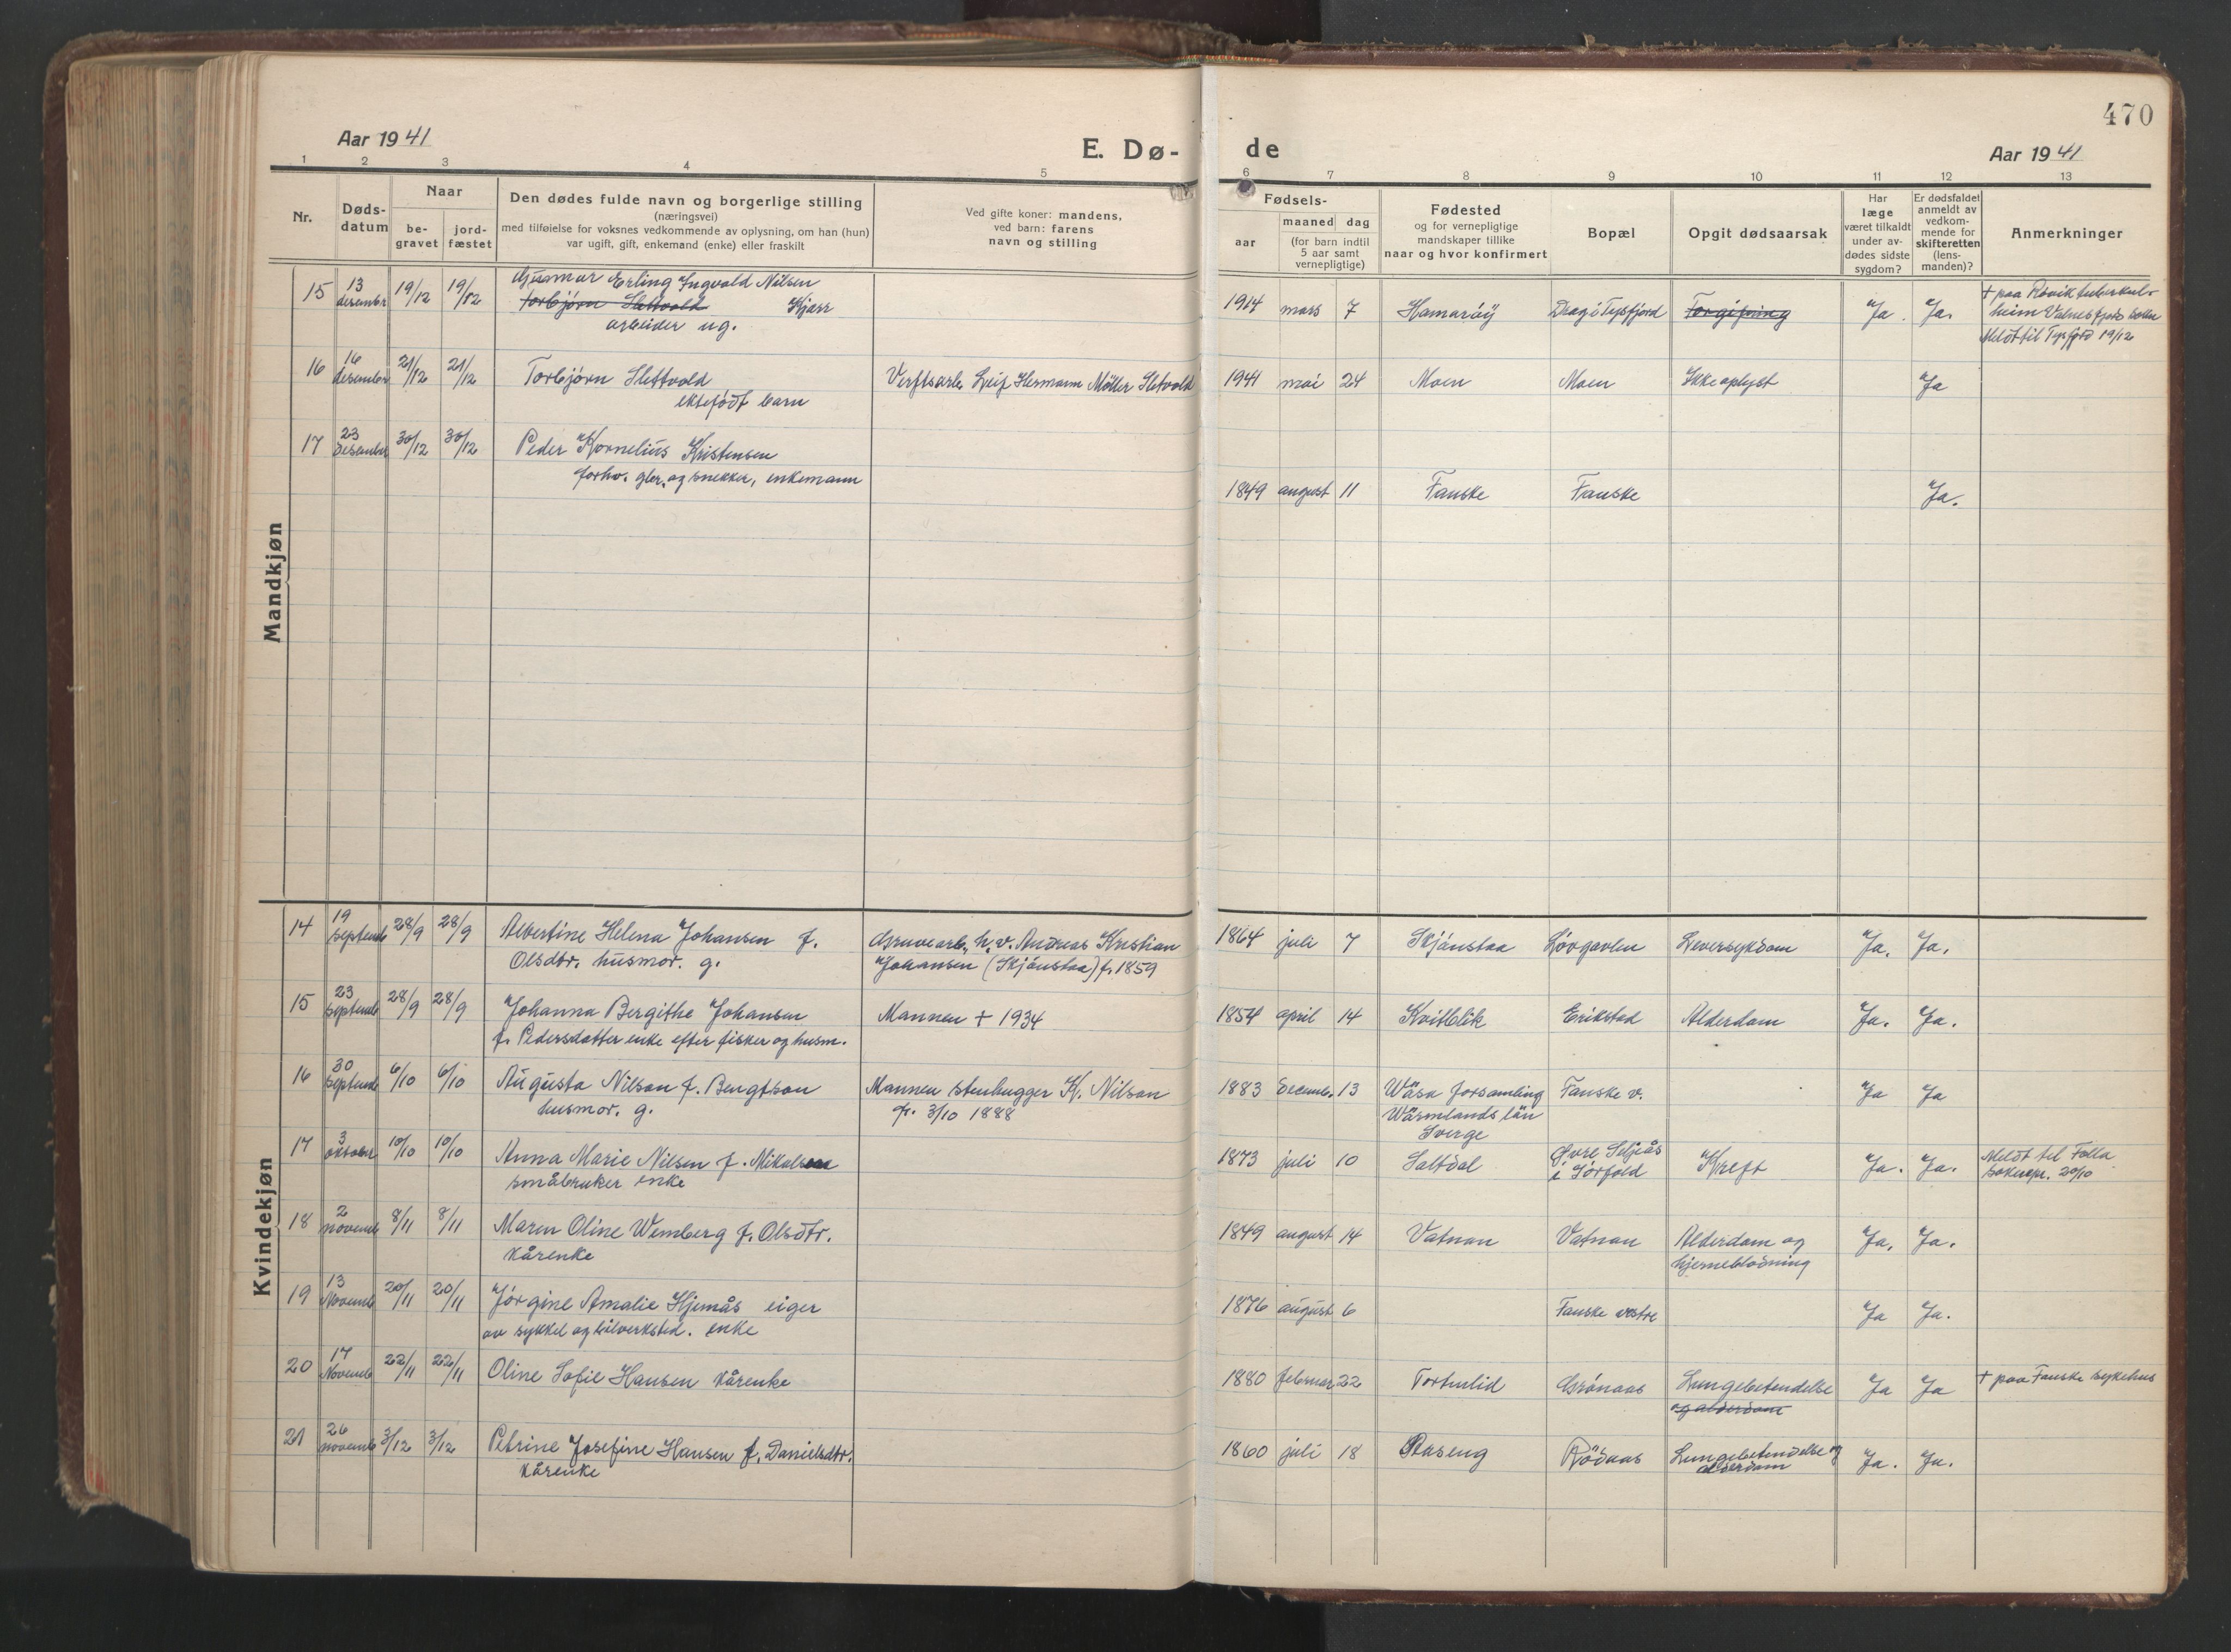 470
Aar 1941
E. Dø-
de
Aar 1941
1 2 3 4 5 6 7 8 9 10 11 12 13
Nr.
Døds-
datum
Naar
be-
gravet
jord-
fæstet
Den dødes fulde navn og borgerlige stilling
(næringsvei)
med tilføielse for voksnes vedkommende av oplysning, om han (hun)
var ugift, gift, enkemand (enke) eller fraskilt
Ved gifte koner: mandens,
ved barn: farens
navn og stilling
Fødsels-
aar
maaned dag
(for barn indtil
5 aar samt
vernepligtige)
Fødested
og for vernepligtige
mandskaper tillike
naar og hvor konfirmert
Bopæl
Opgit dødsaarsak
Har
læge
været tilkaldt
under av-
dødes sidste
sygdom?
Er dødsfaldet
anmeldt av
vedkom-
mende for
skifteretten
(lens-
manden)?
Anmerkninger
Mandkjøn
15 13 desember 19/12 19/12 Erling Ingvald Nilsen
Torbjørn Slettvold Kjær
arbeider ug.
1914 mars 7 Hamarøy Drag i Tysfjord Forgiftning Ja. Ja. + paa Røvik tuberkul.
heim Valnesfjord
Meldt til Tysfjord 19/12
16 16 desember 21/12 21/12 Torbjørn Slettvold
ektefødt barn
Verftsarb. Leif Hermann Møller Sletvold 1941 mai 24 Moen Moen Ikke oplyst Ja
17 23 desember 30/12 30/12 Peder Kornelius Kristensen
forhv. gbr. og snekker, enkemann
1849 august 11 Fauske Fauske Ja.
Kvindekjøn
14 19 septemb 28/9 28/9 Albertine Helena Johansen f.
Olsdtr. husmor. g.
Gruvearb. h.v. Andreas Kristian
Johansen (Skjånstaa) f. 1859
1864 juli 7 Skjånstaa Løvgavlen Leversykdom Ja. Ja.
15 23 septemb 28/9 28/9 Johanna Bergithe Johansen
f. Pedersdatter enke efter fisker og husm.
Mannen + 1934 1854 april 14 Kvitblik Erikstad Alderdom Ja. Ja.
16 30 septemb 6/10 6/10 Augusta Nilson f. Bengtson
husmor. g.
Mannen stenhugger K. Nilson
f. 3/10 1888
1883 decemb. 13 Wåsa forsamling
Wärmlands län
Sverge
Fauske v. Ja Ja
17 3 oktober 10/10 10/10 Anna Marie Nilsen f. Mikalsen
småbruker enke
1873 juli 10 Saltdal Øvre Seljeås
i Sørfold
Kreft Ja. Ja. Meldt til Folla
soknepr. 20/10
18 2 novemb 8/11 8/11 Maren Oline Wemberg f. Olsdtr.
kårenke
1849 august 14 Vatnan Vatnan Alderdom og
hjerneblødning
Ja. Ja.
19 13 Novemb 20/11 20/11 Jørgine Amalie Hjemås eiger
av sykkel og bilverksted. enke
1876 august 6 Fauske vestre Ja Ja.
20 17 Novemb 22/11 22/11 Oline Sofie Hansen kårenke
1880 februar 22 Tortenlid Grønaas Lungebetendelse
og alderdom
Ja Ja + paa Fauske sykehus
21 26 novemb 3/12 3/12 Petrine Josefine Hansen f. Danielsdtr.
kårenke
1860 juli 18 Røsaas Lungebetendelse og
alderdom
Ja. Ja.